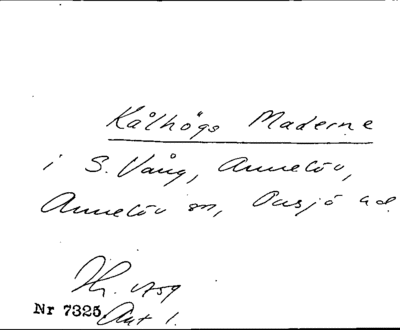 Kålhögs Maderne
i S. Vång, Annelöv,
Annelöv sn, Onsjö hd.
1759
Nr 7325 Akt 1.